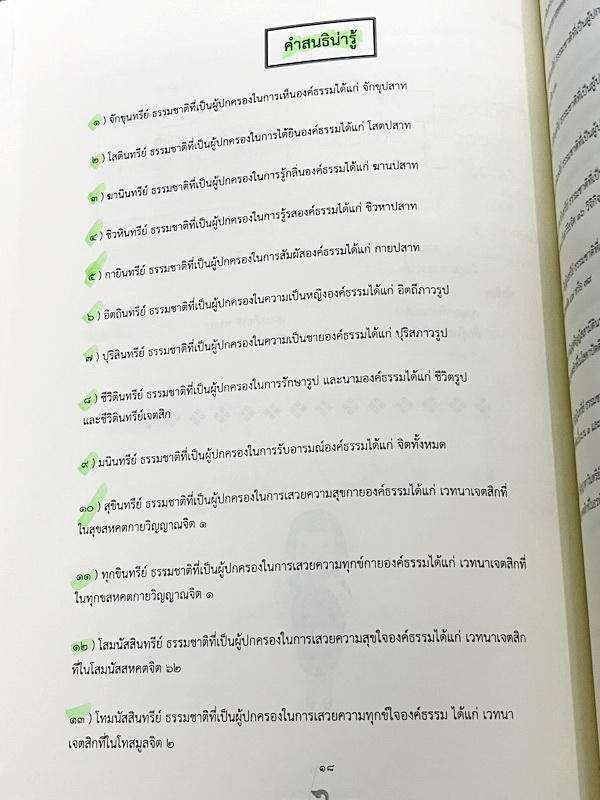 คำสนธิน่ารู้
๑ ) จักขุนทรีย์ ธรรมชาติที่เป็นผู้ปกครองในการเห็นองค์ธรรมได้แก่ จักขุปสาท
๒ ) โสตินทรีย์ ธรรมชาติที่เป็นผู้ปกครองในการได้ยินองค์ธรรมได้แก่ โสตปสาท
๓ ) ฆานินทรีย์ ธรรมชาติที่เป็นผู้ปกครองในการรู้กลิ่นองค์ธรรมได้แก่ ฆานปสาท
๔ ) ชิวหินทรีย์ ธรรมชาติที่เป็นผู้ปกครองในการรู้รสองค์ธรรมได้แก่ ชิวหาปสาท
๕ ) กายินทรีย์ ธรรมชาติที่เป็นผู้ปกครองในการสัมผัสองค์ธรรมได้แก่ กายปสาท
๖ ) อิตถินทรีย์ ธรรมชาติที่เป็นผู้ปกครองในความเป็นหญิงองค์ธรรมได้แก่ อิตถีภาวรูป
๗ ) ปุริสินทรีย์ ธรรมชาติที่เป็นผู้ปกครองในความเป็นชายองค์ธรรมได้แก่ ปุริสภาวรูป
๘ ) ชีวิตินทรีย์ ธรรมชาติที่เป็นผู้ปกครองในการรักษารูป และนามองค์ธรรมได้แก่ ชีวิตรูป
และชีวิตินทรีย์เจตสิก
๙ ) มนินทรีย์ ธรรมชาติที่เป็นผู้ปกครองในการรับอารมณ์องค์ธรรมได้แก่ จิตทั้งหมด
๑๐ ) สุขินทรีย์ ธรรมชาติที่เป็นผู้ปกครองในการเสวยความสุขกายองค์ธรรมได้แก่ เวทนาเจตสิกที่
ในสุขสหคตกายวิญญาณจิต ๑
๑๑ ) ทุกขินทรีย์ ธรรมชาติที่เป็นผู้ปกครองในการเสวยความทุกข์กายองค์ธรรมได้แก่ เวทนาเจตสิกที่
ในทุกขสหคตกายวิญญาณจิต ๑
๑๒ ) โสมนัสสินทรีย์ ธรรมชาติที่เป็นผู้ปกครองในการเสวยความสุขใจองค์ธรรมได้แก่ เวทนาเจตสิก
ที่ในโสมนัสสหคตจิต ๖๒
๑๓ ) โทมนัสสินทรีย์ ธรรมชาติที่เป็นผู้ปกครองในการเสวยความทุกข์ใจองค์ธรรม ได้แก่ เวทนา
เจตสิกที่ในโทสมูลจิต ๒
๑๘